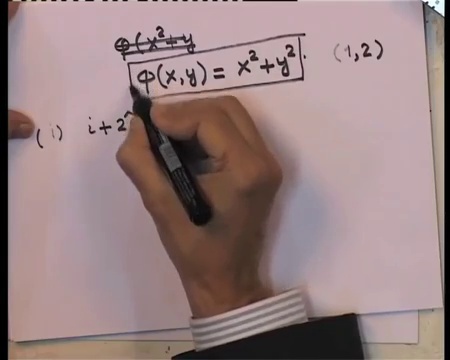 φ(x²+y
φ(x,y) = x²+y². (1,2)
(i) i+2